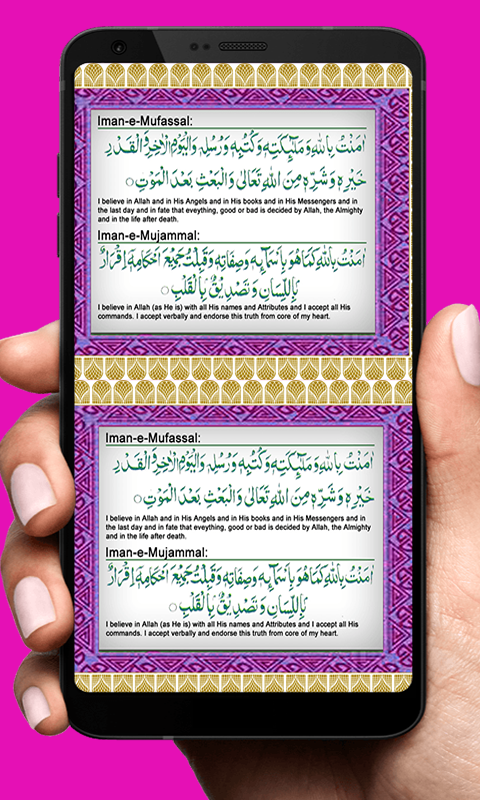 Iman-e-Mufassal:
اٰمَنْتُ بِاللهِ وَمَلٰٓئِكَتِهٖ وَكُتُبِهٖ وَرُسُلِهٖ وَالْيَوْمِ الْاٰخِرِ وَالْقَدْرِ
خَيْرِهٖ وَشَرِّهٖ مِنَ اللهِ تَعَالٰى وَالْبَعْثِ بَعْدَ الْمَوْتِ
I believe in Allah and in His Angels and in His books and in His Messengers and in
the last day and in fate that eveything, good or bad is decided by Allah, the Almighty
and in the life after death.
Iman-e-Mujammal:
اٰمَنْتُ بِاللهِ كَمَا هُوَ بِاَسْمَآئِهٖ وَصِفَاتِهٖ وَقَبِلْتُ جَمِيْعَ اَحْكَامِهٖ اِقْرَارٌ
بِاللِّسَانِ وَتَصْدِيْقٌ بِالْقَلْبِ
I believe in Allah (as He is) with all His names and Attributes and I accept all His
commands. I accept verbally and endorse this truth from core of my heart.
Iman-e-Mufassal:
اٰمَنْتُ بِاللهِ وَمَلٰٓئِكَتِهٖ وَكُتُبِهٖ وَرُسُلِهٖ وَالْيَوْمِ الْاٰخِرِ وَالْقَدْرِ
خَيْرِهٖ وَشَرِّهٖ مِنَ اللهِ تَعَالٰى وَالْبَعْثِ بَعْدَ الْمَوْتِ
I believe in Allah and in His Angels and in His books and in His Messengers and in
the last day and in fate that eveything, good or bad is decided by Allah, the Almighty
and in the life after death.
Iman-e-Mujammal:
اٰمَنْتُ بِاللهِ كَمَا هُوَ بِاَسْمَآئِهٖ وَصِفَاتِهٖ وَقَبِلْتُ جَمِيْعَ اَحْكَامِهٖ اِقْرَارٌ
بِاللِّسَانِ وَتَصْدِيْقٌ بِالْقَلْبِ
I believe in Allah (as He is) with all His names and Attributes and I accept all His
commands. I accept verbally and endorse this truth from core of my heart.